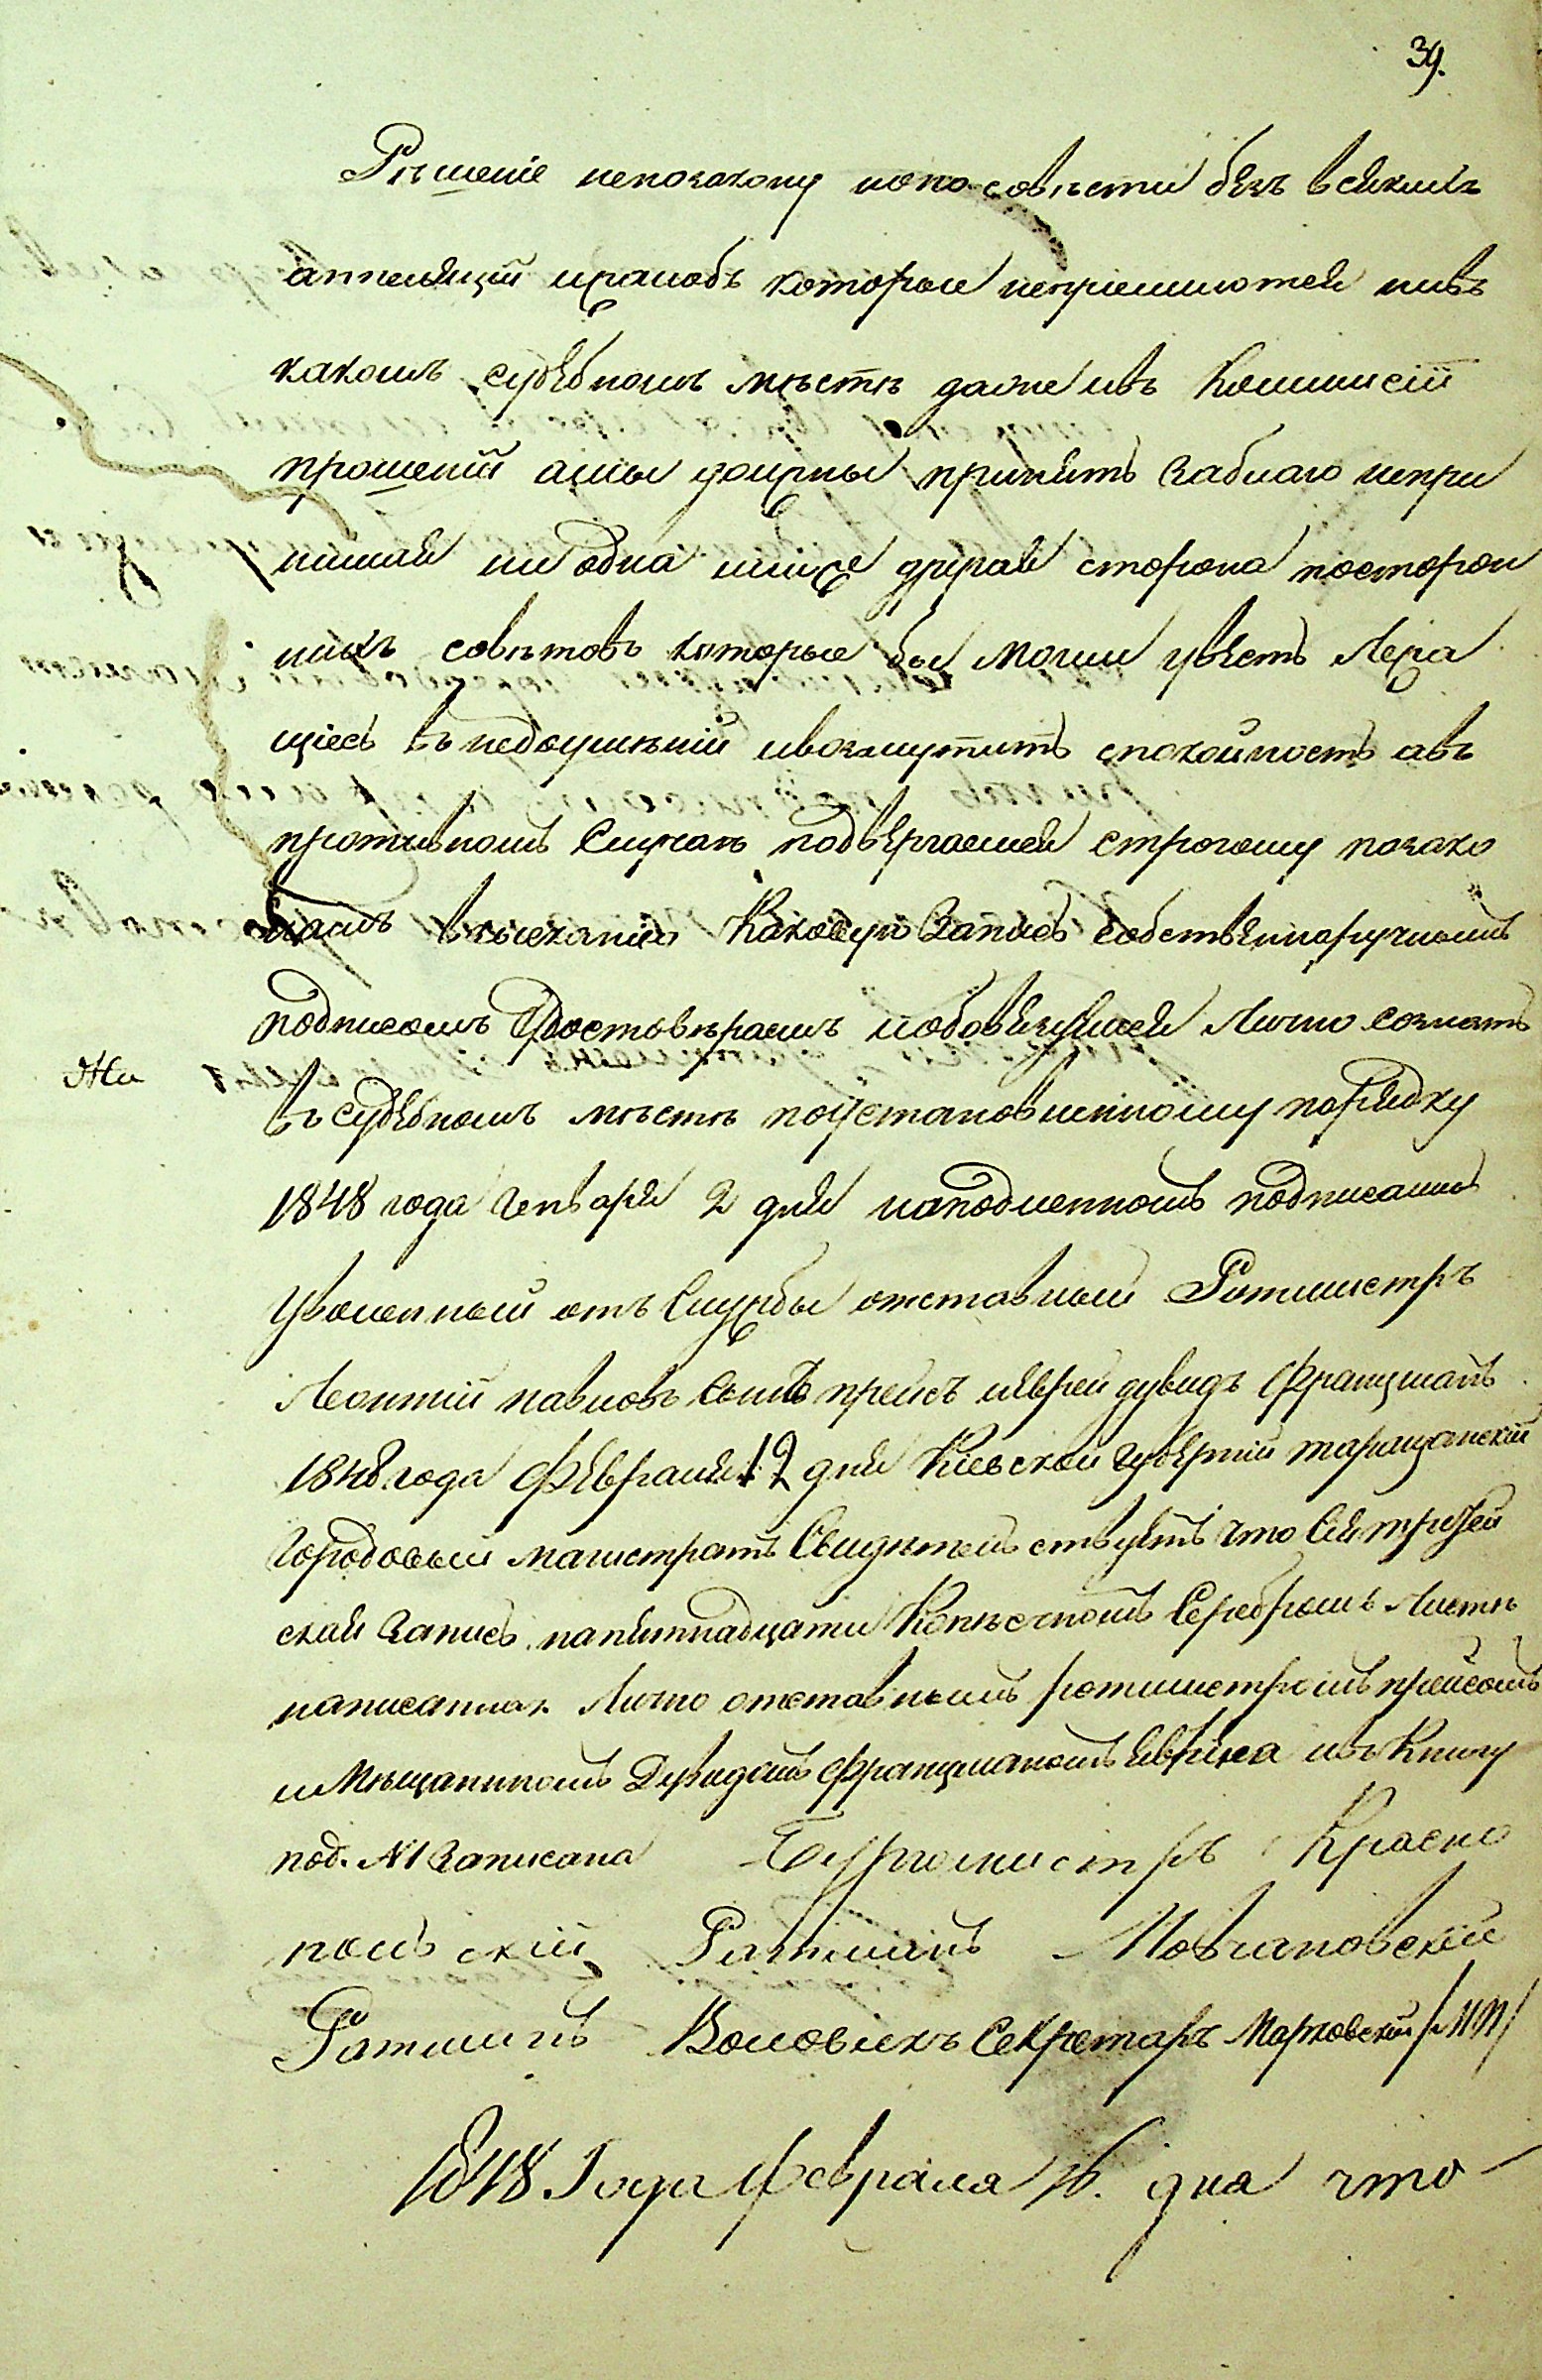 39.
Рѣшеніе непозакону нопо совѣсти безъ всякихъ
аппеляцій ижалобъ которые непріемлются нивъ
какомъ судебномъ мѣстѣ даже ивъ Коммисіи
прошеній амы должны принять заблаго непри
нимая ни одна нижѣ другая сторона посторон
нихъ совѣтовъ которые бы могли увесть Тежа
щіесъ въ недоумѣніи ивозмутить спокойность авъ
противномъ Случаѣ подвергаемся строгому позако
намъ взысканію Каковую Запись собственноручнымъ
подписомъ Удостовѣряемъ иобовязуемся Лично сознать
Жи
въ судебномъ мѣстѣ поустановленному порядку
1848 года Генваря 2 дня наподленномъ подписались
Уволенный отъ Службы отставный Ротмистръ
Леонтій павловъ Сынъ прейсъ иеврей дувидъ Францманъ
1848 года Февраля 12 дня Кіевской губерніи таращанскій
Городовый магистратъ Свидѣтельствуетъ что Сія третей
ская Запись напятнадцати Копѣечномъ Серебромъ Листѣ
написанная Лично отставнымъ ротмистромъ прейсомъ
и Мѣщаниномъ Дувидомъ Францманомъ явлена ивъ Книгу
под. N1 Записана Бургомистръ Красно
польскій Ратманъ Мовчановскій
Ратманъ Воловикъ Секретарь Марковскій /МП/
1848 Года Февраля 16. дня что